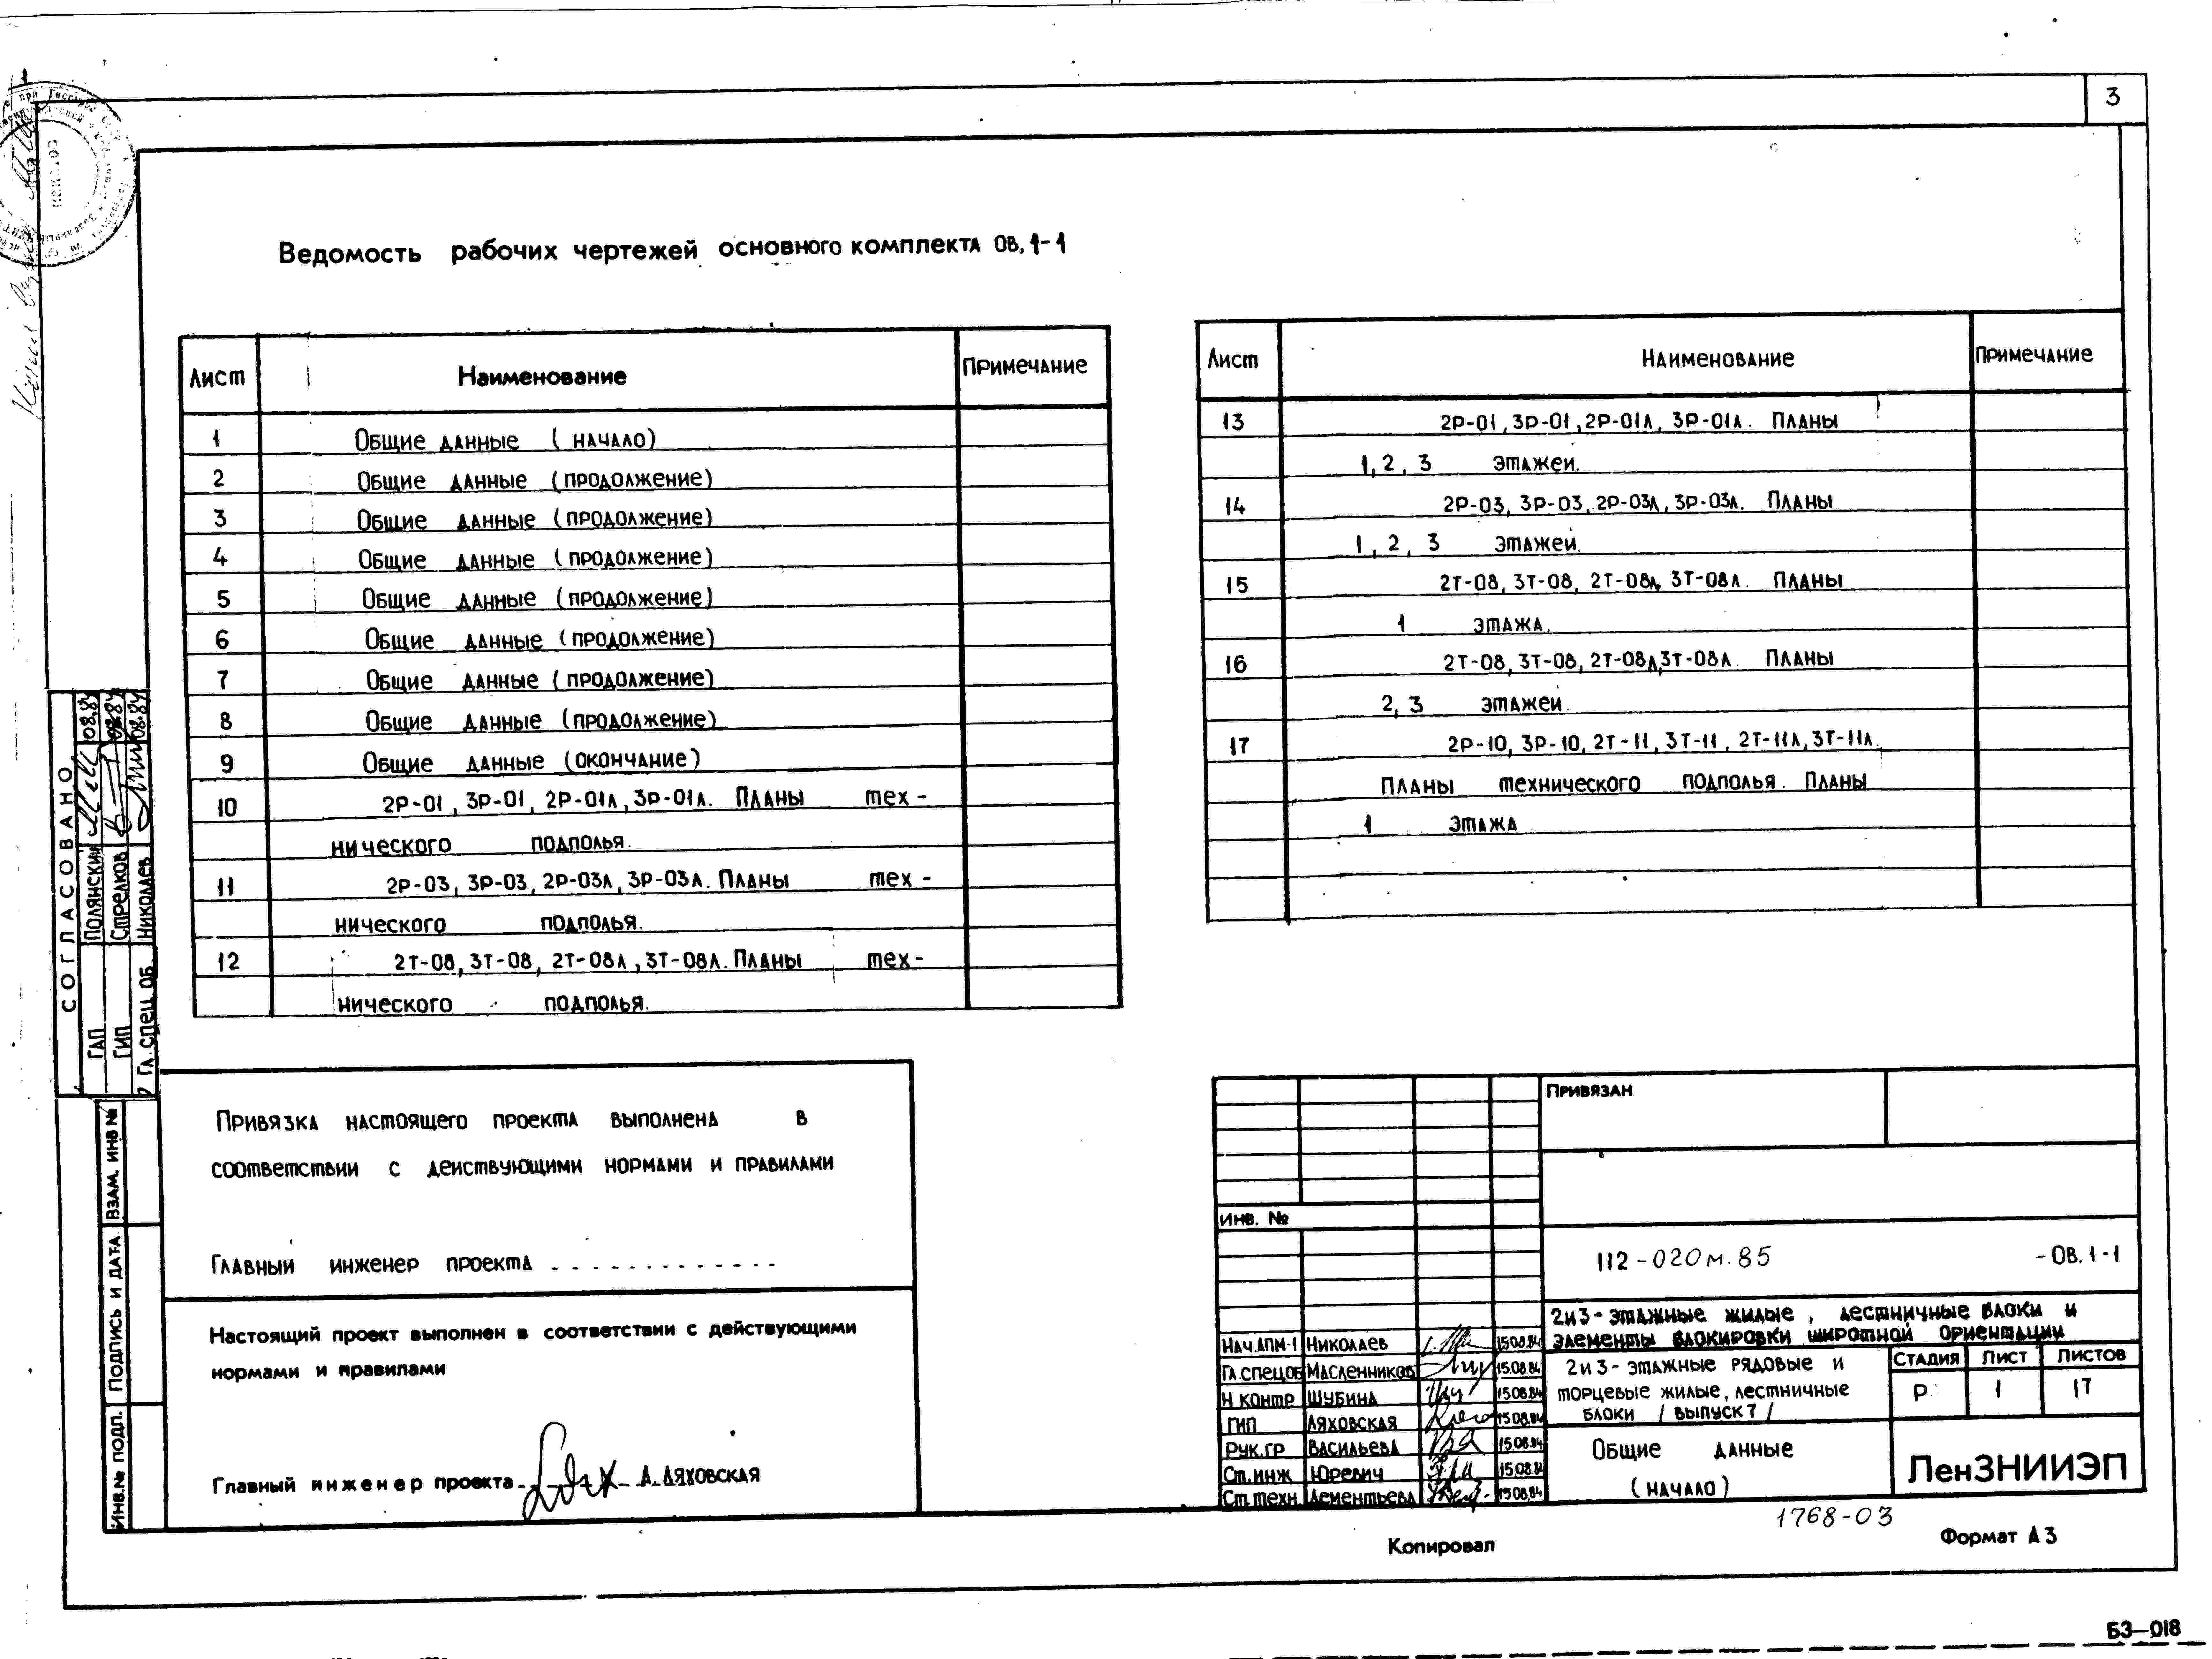 3
Ведомость рабочих чертежей основного комплекта ОВ.1-1
Лист Наименование Примечание
1 Общие данные (начало)
2 Общие данные (продолжение)
3 Общие данные (продолжение)
4 Общие данные (продолжение)
5 Общие данные (продолжение)
6 Общие данные (продолжение)
7 Общие данные (продолжение)
8 Общие данные (продолжение)
9 Общие данные (окончание)
10 2Р-01, 3Р-01, 2Р-01л, 3Р-01л. Планы тех-
нического подполья.
11 2Р-03, 3Р-03, 2Р-03л, 3Р-03л. Планы тех-
нического подполья.
12 2Т-08, 3Т-08, 2Т-08л, 3Т-08л. Планы тех-
нического подполья.
Лист Наименование Примечание
13 2Р-01, 3Р-01, 2Р-01л, 3Р-01л. Планы
1, 2, 3 этажей.
14 2Р-03, 3Р-03, 2Р-03л, 3Р-03л. Планы
1, 2, 3 этажей.
15 2Т-08, 3Т-08, 2Т-08л, 3Т-08л. Планы
1 этажа.
16 2Т-08, 3Т-08, 2Т-08л, 3Т-08л. Планы
2, 3 этажей.
17 2Р-10, 3Р-10, 2Т-11, 3Т-11, 2Т-11л, 3Т-11л.
Планы технического подполья. Планы
1 этажа
СОГЛАСОВАНО
ГАП Полянский 08.84
ГИП Стрелков 08.84
Гл. спец. ОБ Николаев 08.84
Взам. инв №
Подпись и дата
Инв.№ подл.
Привязка настоящего проекта выполнена в
соответствии с действующими нормами и правилами
Главный инженер проекта
Настоящий проект выполнен в соответствии с действующими
нормами и правилами
Главный инженер проекта А. Ляховская
Привязан
Инв. №
112-020м.85 -ОВ.1-1
2и3-этажные жилые, лестничные блоки и
элементы блокировки широтной ориентации
Нач.АПМ-1 Николаев 15.08.84
Гл.спец.ОБ Масленников 15.08.84
Н контр Шубина 15.08.84
ГИП Ляховская 15.08.84
Рук.гр Васильева 15.08.84
Ст.инж Юревич 15.08.84
Ст.техн Дементьева 15.08.84
2и3-этажные рядовые и
торцевые жилые, лестничные
блоки /выпуск 7/
Стадия Лист Листов
Р 1 17
Общие данные
(начало)
ЛенЗНИИЭП
1768-03
Копировал
Формат А3
БЗ-018